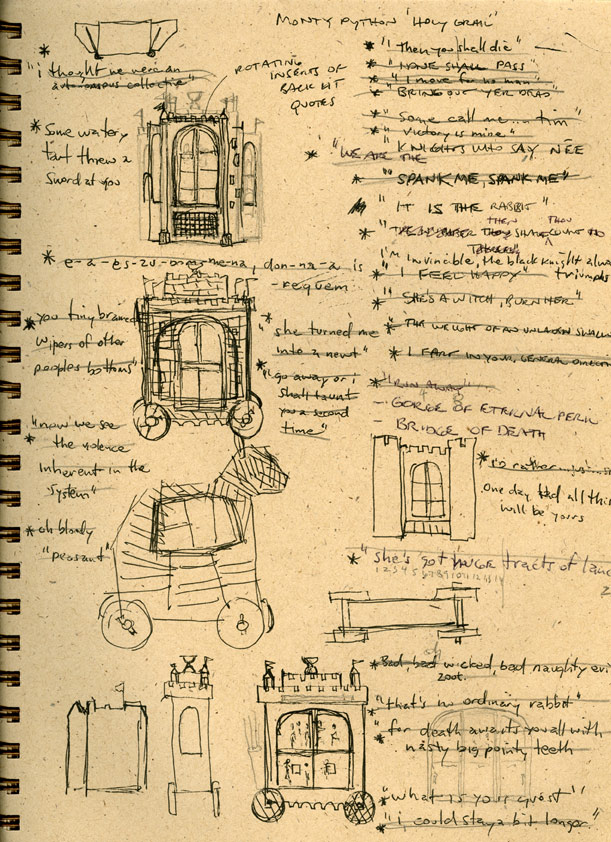 MONTY PYTHON 'HOLY GRAIL'
* "i thought we were an
autonomous collective"
ROTATING
INSERTS OF
BACK LIT
QUOTES
* Some watery
tart threw a
sword at you
* "Then you shall die"
* "NONE SHALL PASS"
* "I move for no man"
* "BRING OUT YER DEAD"
* "Some call me... tim"
* "Victory is mine"
* "WE ARE THE KNIGHTS WHO SAY NEE
* "SPANK ME, SPANK ME"
"IT IS THE RABBIT"
I'm Invincible, the black knight always
triumphs
* "I FEEL HAPPY"
* "SHE'S A WITCH, BURN HER"
* THE WEIGHT OF AN UNLADEN SWALLOW
* I FART IN YOUR GENERAL DIRECTION
* "RUN AWAY"
- GORGE OF ETERNAL PERIL
- BRIDGE OF DEATH
- requem
* you tiny brained
wipers of other
peoples bottoms"
* "she turned me
into a newt"
* "go away or i
shall taunt
you a second
time"
* "now we see
the violence
inherent in the
system"
* oh bloody
"peasant"
one day lad all this
will be yours
* "she's got HUGE tracts of land
1 2 3 4 5 6 7 8 9 10 11 12 13 14
* Bad, bad wicked, bad naughty evil
zoot.
* "that's no ordinary rabbit"
* "for death awaits you all with
nasty big pointy teeth
* "what is your quest"
* "i could stay a bit longer"